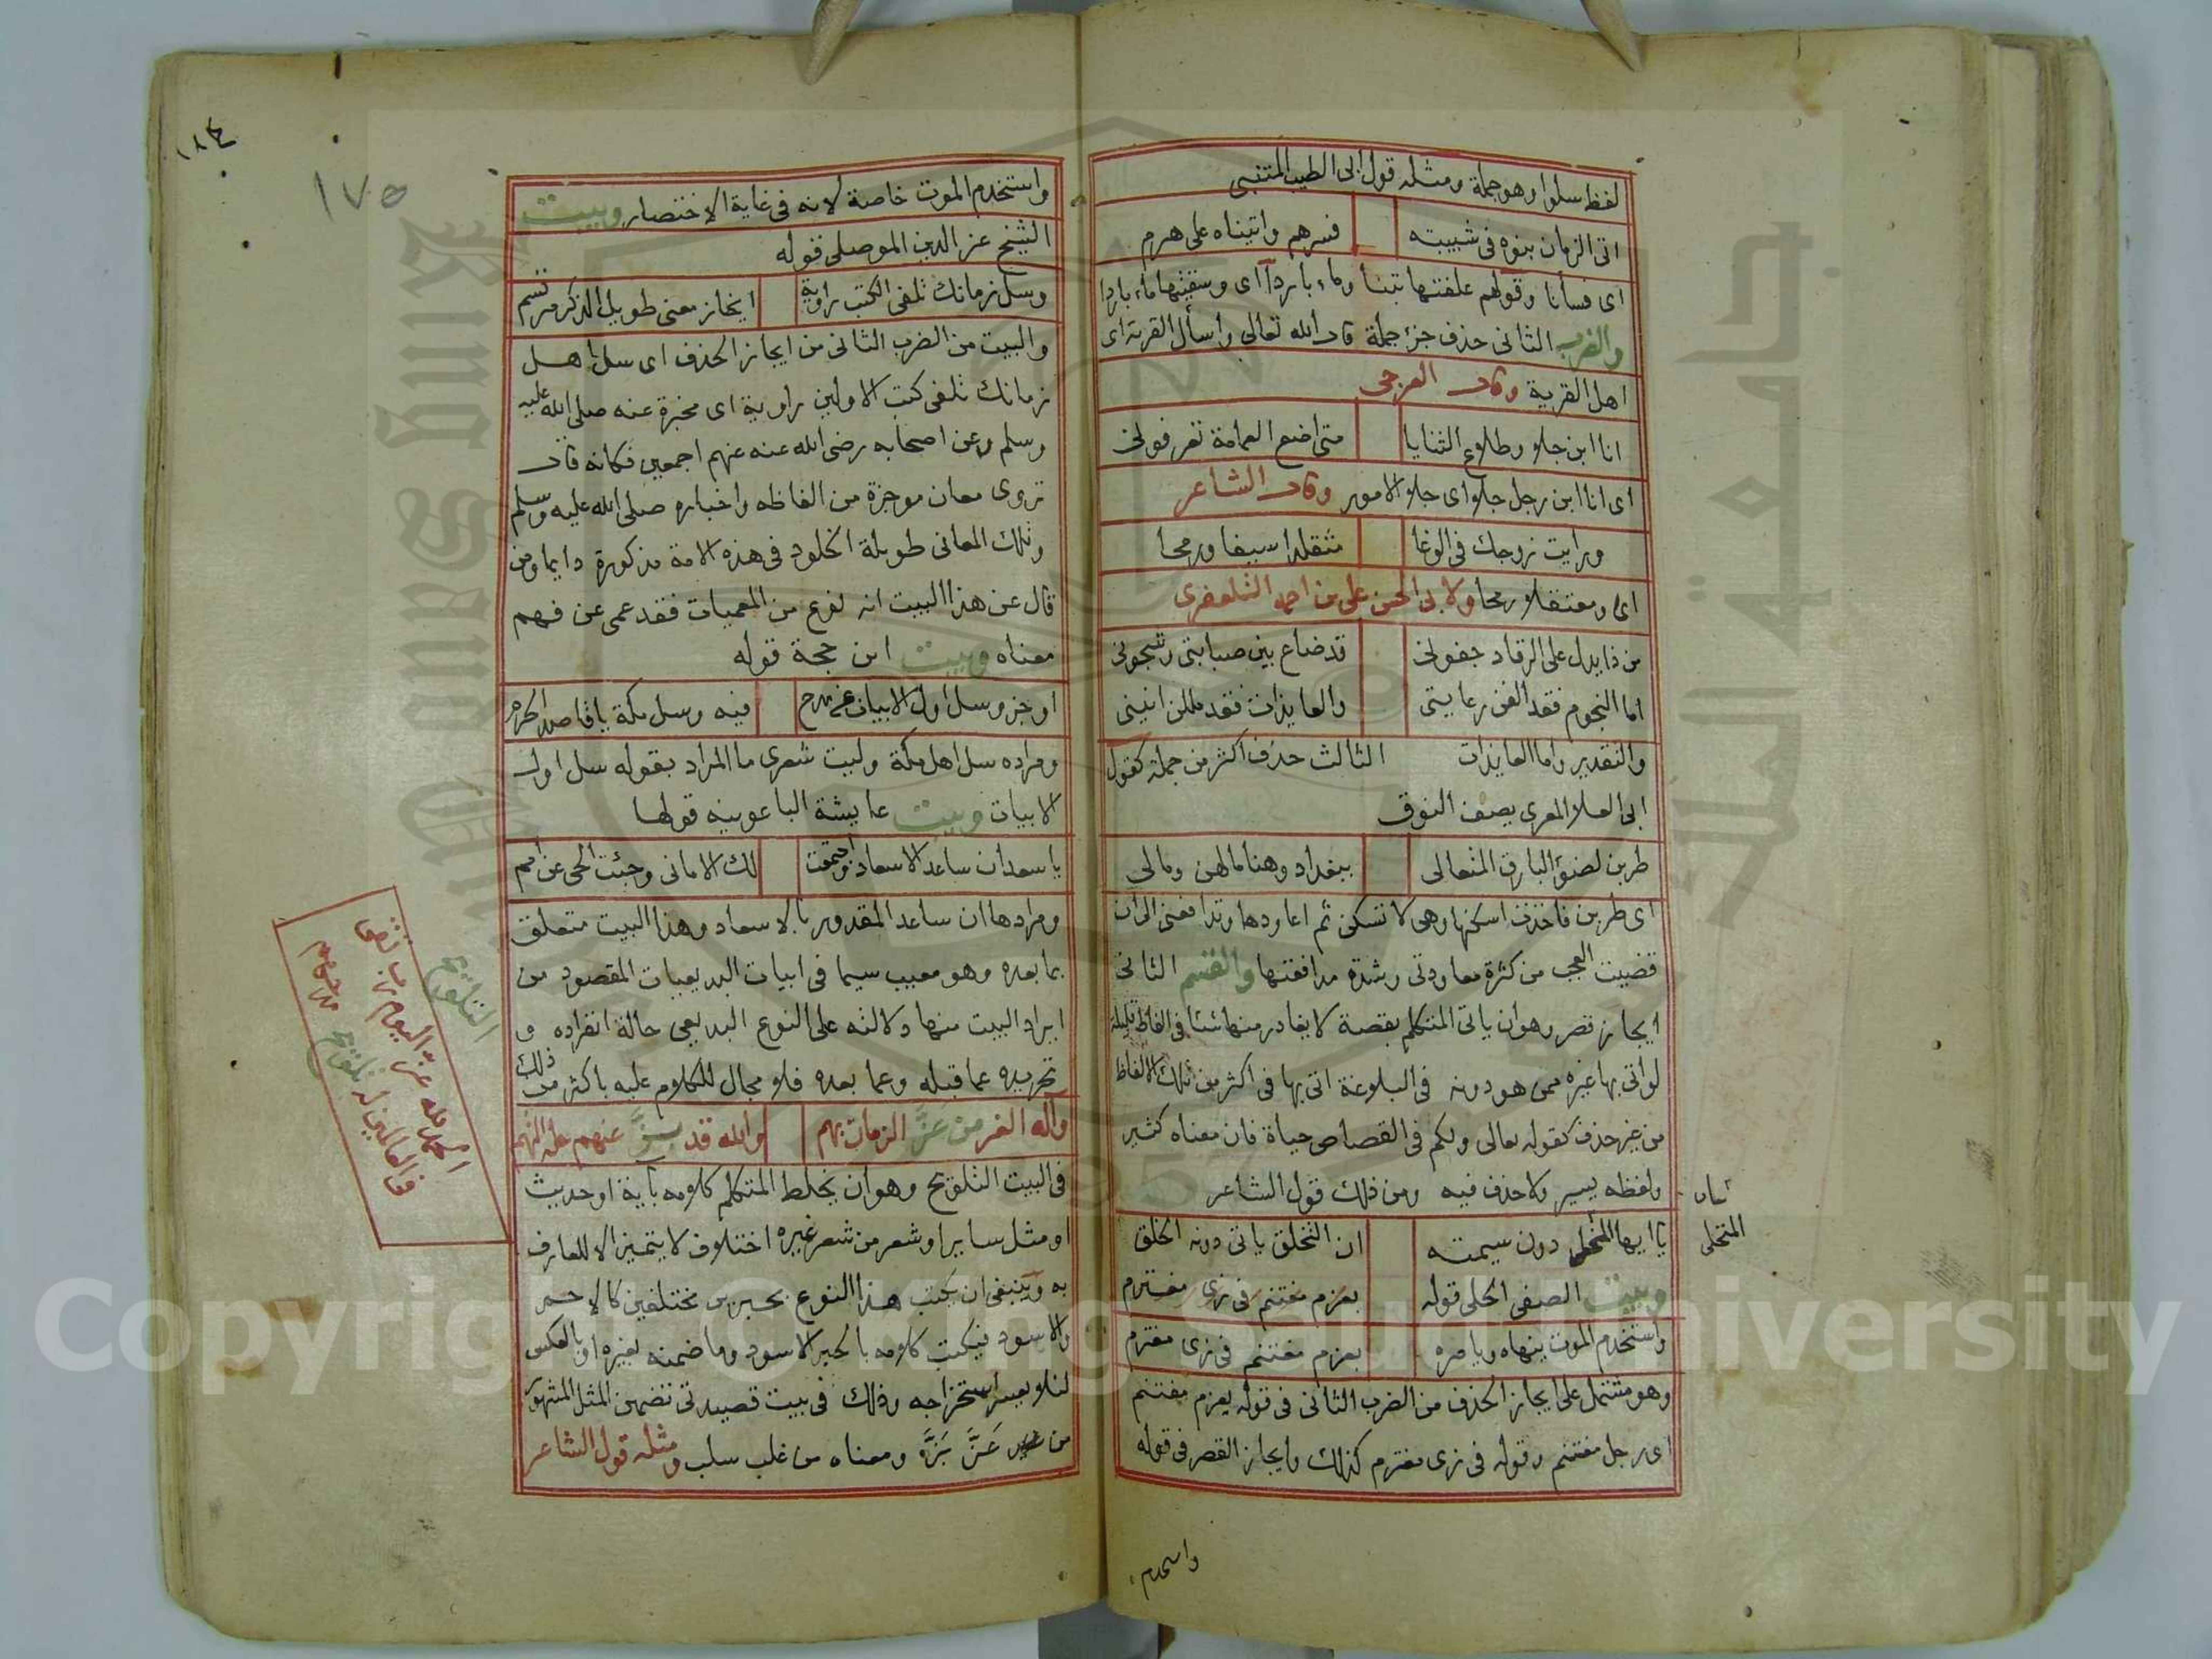 لفظ سلوا وهو جملة ومثله قول ابى الطيب المتنبى
اتى الزمان بنوه فى شبيبته فسرهم واتيناه على هرم
اى فسأنا وقولهم علفتها تبنا وماء باردا اى وسقيتها ماء باردا
والضرب الثانى حذف جزء جملة قال الله تعالى واسأل القرية اى
اهل القرية وقال العرجى
انا ابن جلا وطلاع الثنايا متى اضع العمامة تعرفونى
اى انا ابن رجل جلا اى جلا الامور وقال الشاعر
ورايت زوجك فى الوغا متقلدا سيفا ورمحا
اى ومعتقلا رمحا ولابى الحسن على بن احمد التلعفرى
من ذا يدل على الرقاد جفونى قد ضاع بين صبابتى وشجونى
اما النجوم فقد الفن رعايتى والعايذات فقد مللن انينى
والتقدير واما العايذات الثالث حذف اكثر من جملة كقول
ابى العلا المعرى يصف النوق
طربن لضوء البارق المتعالى ببغداد وهنا مالهن ومالى
اى طربن فاخذت اسكنها وهى لا تسكن ثم اعاودها وتدافعنى الى ان
قضيت العجب من كثرة معاودتى وشدة مدافعتها والقسم الثانى
ايجاز قصر وهو ان ياتى المتكلم بقصة لا يغادر منها شئا فى الفاظ قليلة
لو اتى بها غيره ممن هو دونه فى البلاغة اتى بها فى اكثر من تلك الالفاظ
من غير حذف كقوله تعالى ولكم فى القصاص حياة فان معناه كثير
ولفظه يسير ولا حذف فيه ومن ذلك قول الشاعر
يا ايها المتحلى دون سيمته ان التخلق ياتى دونه الخلق
المتحلى
وبيت الصفى الحلى قوله بعزم مغتنم فى زى مغترم
واستخدم الموت ينهاه ويامره بعزم مغتنم فى زى مغترم
وهو مشتمل على ايجاز الحذف من الضرب الثانى فى قوله بعزم مغتنم
اى رجل مغتنم وقوله فى زى مغترم كذلك وايجاز القصر فى قوله
واستخدم
١٨٤
١٧٥
واستخدم الموت خاصة لانه فى غاية الاختصار وبيت
الشيخ عز الدين الموصلى قوله
وسل زمانك تلفى الكتب راوية ايجاز معنى طويل الذكر مرتسم
والبيت من الضرب الثانى من ايجاز الحذف اى سل اهل
زمانك تلفى كتب الاولين راوية اى مخبرة عنه صلى الله عليه
وسلم وعن اصحابه رضى الله عنه عنهم اجمعين فكانه قال
تروى معان موجزة من الفاظه واخباره صلى الله عليه وسلم
وتلك المعانى طويلة الخلود فى هذه الامة مذكورة دايما ومن
قال عن هذا البيت انه نوع من المعميات فقد عمى عن فهم
معناه وبيت ابن حجة قوله
اوجز وسل اول الابيات عن مدح فيه وسل مكة يا قاصد الحرم
ومراده سل اهل مكة وليت شعرى ما المراد بقوله سل اول
الابيات وبيت عايشة الباعونيه قولها
يا سعد ان ساعد الاسعاد واجتمعت لك الامانى وجئت الحى عن امم
ومرادها ان ساعد المقدور بالاسعاد وهذا البيت متعلق
بما بعده وهو معيب سيما فى ابيات البديعيات المقصود من
ايراد البيت منها دلالته على النوع البديعى حالة انفراده و
تجريده عما قبله وعما بعده فلا مجال للكلام عليه باكثر من ذلك
وآله الغر من عَزَّ الزمان بهم والله قد بَزَّ عنهم حلة التهم
فى البيت التلويح وهو ان يخلط المتكلم كلامه بآية او حديث
او مثل ساير او شعر من شعر غيره اختلاف لا يتميز الا للعارف
به وينبغى ان يكتب هذا النوع بحبرين مختلفين كالاحمر
والاسود فيكتب كلامه بالحبر الاسود وما ضمنه لغيره او بالعكس
لئلا يعسر استخراجه وذلك فى بيت قصيدتى تضمين المثل المشهور
من عَزَّ بَزَّ ومعناه من غلب سلب ومثله قول الشاعر